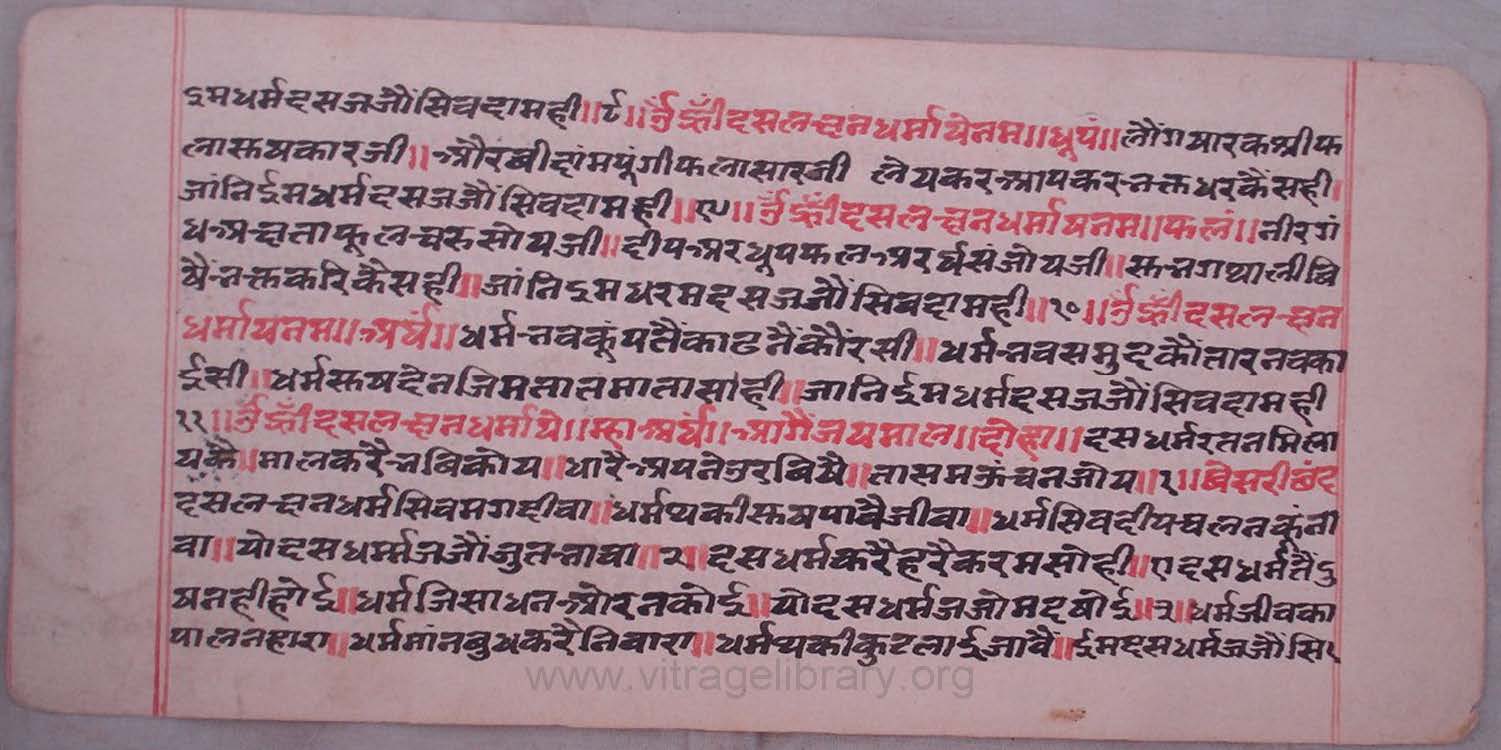 इमधर्मदसजजौंसिवदामही॥८॥ॐह्रींदसलक्षनधर्मायेनम॥धूपं॥लौंगषारकश्रीफ
लासुषकारजी॥औरबीदांमपूंगीफलासारजी लेयकरआपकरभक्तधरकैंसही।
जांनिईमधर्मदसजजौंसिवदामही॥९॥ॐह्रींदसलक्षनधर्मायनम॥फलं॥नीरगं
धअक्षताफूलचरुसोयजी॥दीपअरधूपफलअरर्घसंजोयजी॥सुभगथालीबि
षैंभक्तकरिकैसही॥जांनिइमधरमदसजजौंसिवदामही॥१०॥ॐह्रींदसलक्षन
धर्मायनम॥अर्घं॥धर्मभवकूंपतैंकाढनैंकौंरसी॥धर्मभवसमुदकौंतारनवका
ईसी॥धर्मसुषदेनजिमतातमातासही॥जानिईमधर्मदसजजौंसिवदामही
११॥ॐह्रींदसलक्षनधर्माये॥म्हाअर्घं॥आगैंजयमाल॥दोहा॥दसधर्मरतनमिला
यकै॥मालकरैभबिकोय॥धारैअपनेउरबिषै॥तासमऊंचनजोय॥१॥बेसरीछंद
दसलक्षनधर्मसिवमगदीवा॥धर्मथकीसुषपावैजीवा॥धर्मसिवदीपचलनकूंना
वा॥योदसधर्मजजौंजुतभावा॥२॥दसधर्मकरैहरैकरमसोही॥एदसधर्मतैंदु
षनहीहोई॥धर्मजिसाधनओरनकोई॥योदसधर्मजजोमदषोई॥३॥धर्मजीवका
पालनहारा॥धर्ममांनबुधकरैनिवारा॥धर्मथकीकुटलाईजावैं॥ईमदसधर्मजजौंसि
www.vitragelibrary.org